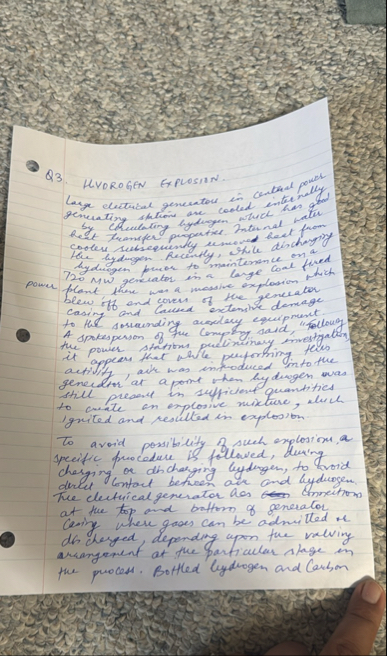 Q3. HYDROGEN EXPLOSION.
Large electrical generators in central power
generating stations are cooled internally
by circulating hydrogen which has good
heat transfer properties. Internal water
coolers subsequently removed heat from
the hydrogen. Recently, while discharging
hydrogen prior to maintenance on a
720 MW generator in a large coal fired
power plant there was a massive explosion which
blew off end covers of the generator
casing and caused extensive damage
to the sorrounding auxiliary equipment.
A spokesperson of the Company said, "Following
the power stations preliminary investigation,
it appears that while performing this
activity, air was introduced into the
generator at a point when hydrogen was
still present in sufficient quantities
to create an explosive mixture, which
ignited and resulted in explosion.
To avoid possibility of such explosions, a
specific procedure is followed, during
charging or discharging hydrogen, to avoid
direct contact between air and hydrogen.
The electrical generator has connections
at the top and bottom of generator
casing where gases can be admitted or
discharged, depending upon the valving
arrangement at the particular stage in
the process. Bottled hydrogen and Carbon